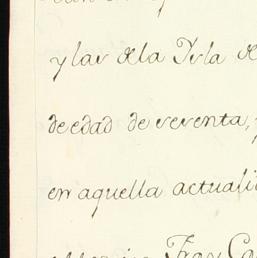 y las de la Isla de
de edad de sesenta,
en aquella actuali
Fray Ca